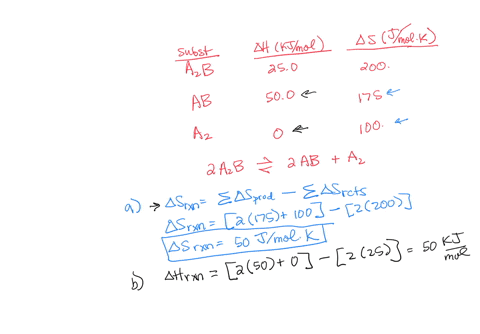 subst ΔH (KJ/mol) ΔS (J/mol·K)
A₂B 25.0 200.
AB 50.0 ← 175 ←
A₂ 0 ← 100. ←
2A₂B ⇌ 2AB + A₂
a) → ΔSrxn = ΣΔSprod − ΣΔSrcts
ΔSrxn = [2(175) + 100] − [2(200)]
ΔSrxn = 50 J/mol·K
b) ΔHrxn = [2(50) + 0] − [2(25)] = 50 KJ/mol